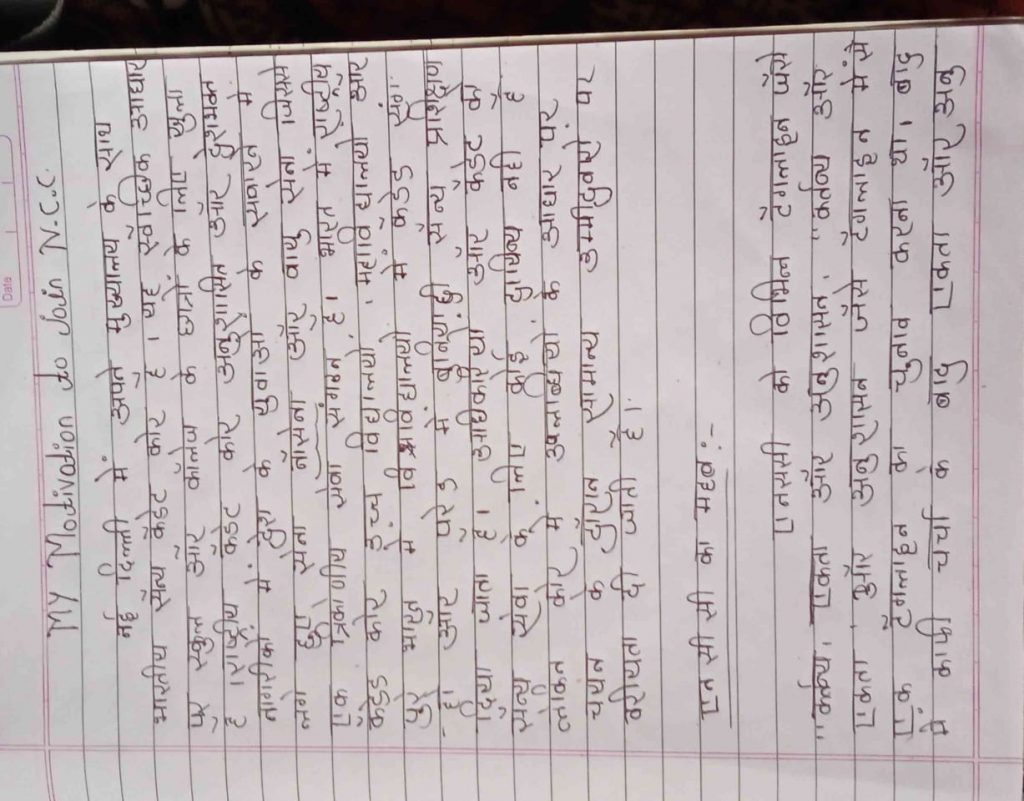 Date
MY Motivation to Join N.C.C.
नई दिल्ली में अपने मुख्यालय के साथ
भारतीय सैन्य कैडेट कोर है। यह स्वैच्छिक आधार
पर स्कूल और कॉलेज के छात्रों के लिए खुला
है। राष्ट्रीय कैडेट कोर अनुशासित और देशभक्त
नागरिकों में देश के युवाओ के सवारने में
लगी हुई सेना नौसेना और वायु सेना जिसमें
एक त्रिकोणीय सेवा संगठन है। भारत में राष्ट्रीय
कैडेट कोर उच्च विद्यालयो, महाविद्यालयो और
पूरे भारत में विश्वविद्यालयो में कैडेट
है। और परेड में सैन्य प्रशिक्षण
दिया जाता है। अधिकारियो और कैडेट को
सैन्य सेवा के लिए कोई दायित्व नही है
लेकिन कोर में उपलब्धियो के आधार पर
चयन के दौरान सामान्य उम्मीदवारो पर
वरीयता दी जाती है।
एन सी सी का महत्व:-
एनसीसी को विभिन्न टैगलाइन जैसे
"कर्तव्य, एकता और अनुशासन," कर्तव्य और
एकता, और अनुशासन जैसे टैगलाइन में से
एक टैगलाइन का चुनाव करना था। बाद
में काफी चर्चा के बाद एकता और अनु